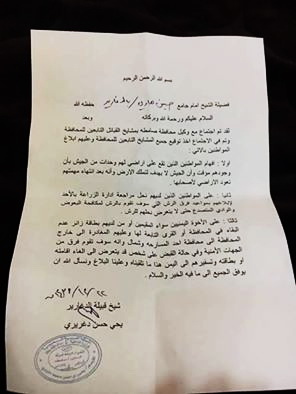 بسم الله الرحمن الرحيم
فضيلة الشيخ امام جامع حفظه الله
السلام عليكم ورحمة الله وبركاته وبعد
لقد تم اجتماع مع وكيل محافظة صامطه بمشايخ القبائل التابعين للمحافظة
وتم في الاجتماع اخذ توقيع جميع المشايخ التابعين للمحافظة وعليهم ابلاغ
المواطنين بالاتي :
اولا : افهام المواطنين الذين تقع على اراضي لهم وحدات من الجيش بأن
وجودهم موقت وأن الجيش لا يهدف لتملك الارض وأنه بعد انتهاء مهمتهم
تعود لأصحابها .
ثانيا : على المواطنين الذين لديهم نحل مراجعة ادارة الزراعة بالأحد
لإبلاغهم بمواعيد فرق الرش التي سوف تقوم بالرش لمكافحة البعوض
والوادي المتصدع حتى لا يتعرض نحلهم للرش .
ثالثا : على الأخوة اليمنيين سواء المقيمين أو من لديهم بطاقة زائر عدم
البقاء في المحافظة أو القرى التابعة لها وعليهم المغادرة الى خارج
المحافظة الى محافظة احد المسارحه وشمال وأنه سوف تقوم فرق من
الجهات الأمنية وفي حالة القبض على شخص قد يتعرض الى الغاء اقامته
أو بطاقته وتسفيرهم الى اليمن هذا ما تلقيناه وعلينا البلاغ ونسأل الله ان
يوفق الجميع الى ما فيه الخير والسلام .
شيخ قبيلة الدغارير
يحي حسن دغريري